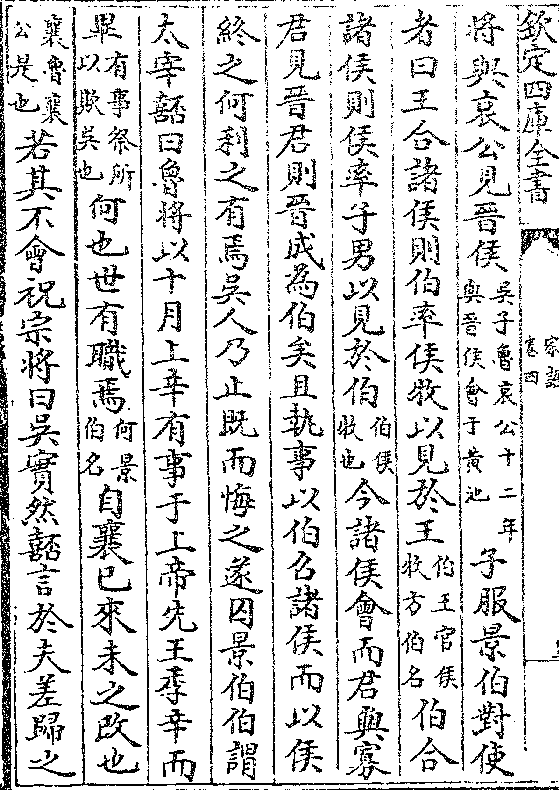 欽定四庫全書
家語
卷四
將與哀公見晉侯吳子魯哀公十二年與晉侯會于黄池子服景伯對使
者曰王合諸侯則伯率侯牧以見於王伯王官侯牧方伯名伯合
諸侯則侯率子男以見於伯伯侯牧也今諸侯會而君與寡
君見晉君則晉成為伯矣且執事以伯召諸侯而以侯
終之何利之有焉吳人乃止既而悔之遂囚景伯伯謂
太宰嚭曰魯將以十月上辛有事于上帝先王季辛而
畢有事祭所以欺吳也何也世有職焉何景伯名自襄已來未之改也
襄魯襄公是也若其不會祝宗將曰吳實然嚭言於夫差歸之